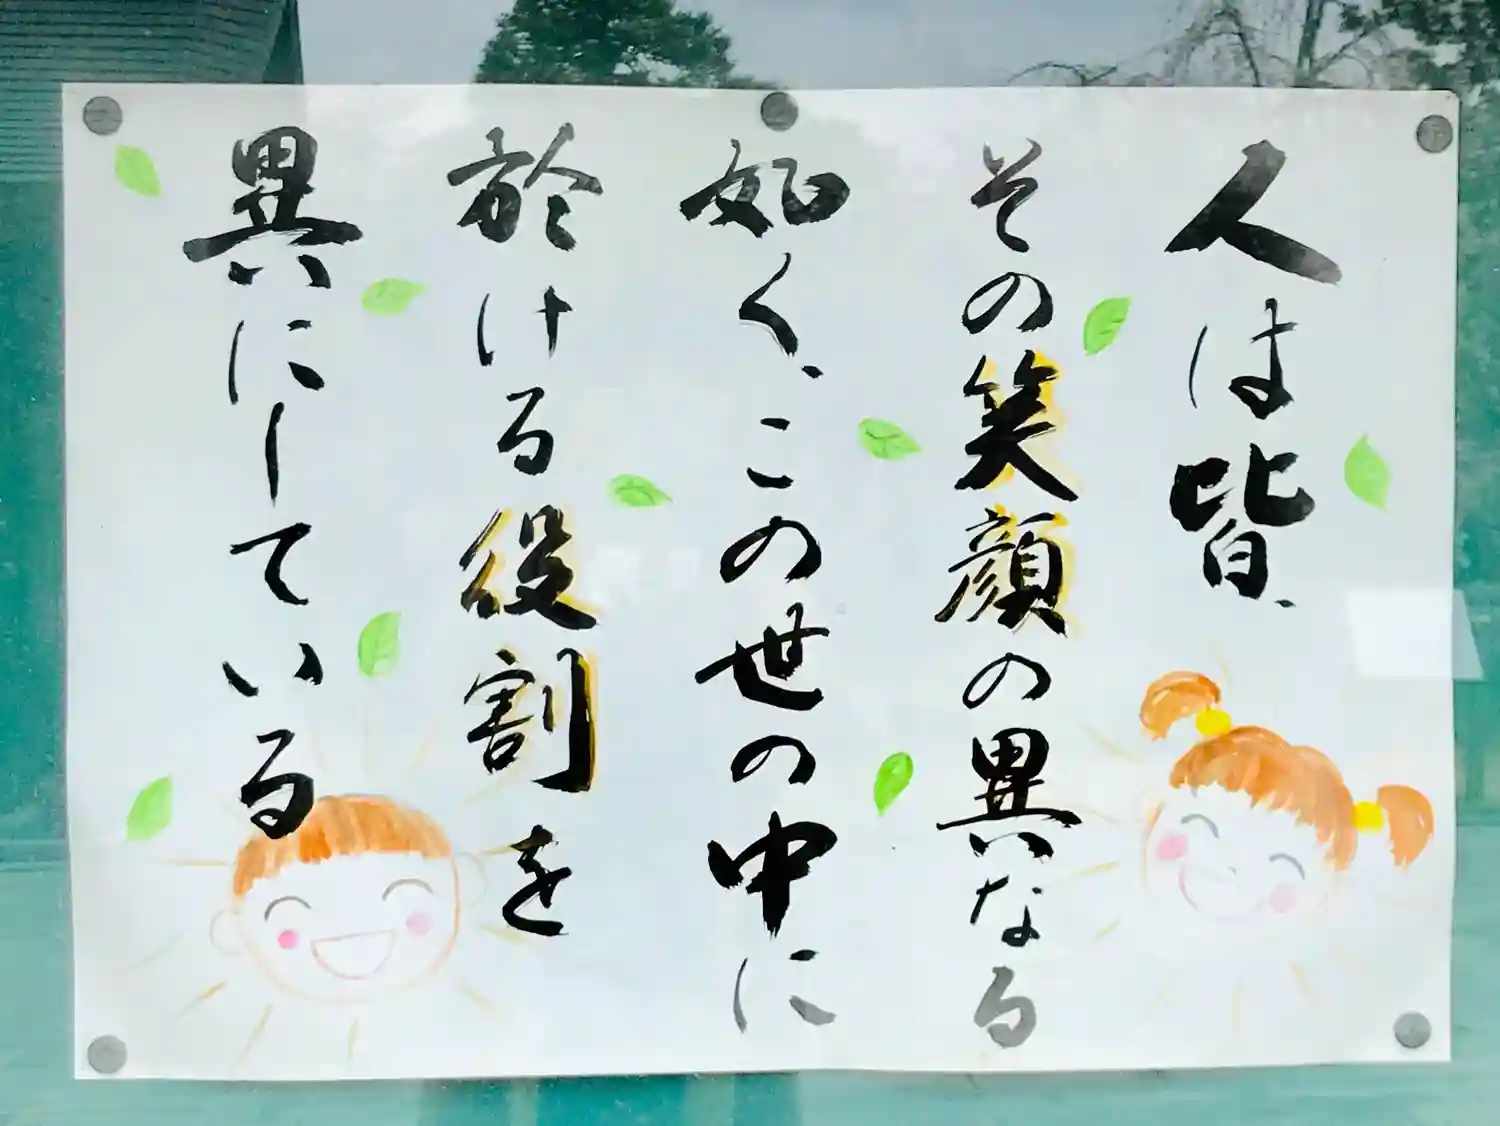 人は皆、
その笑顔の異なる
如く、この世の中に
於ける役割を
異にしている